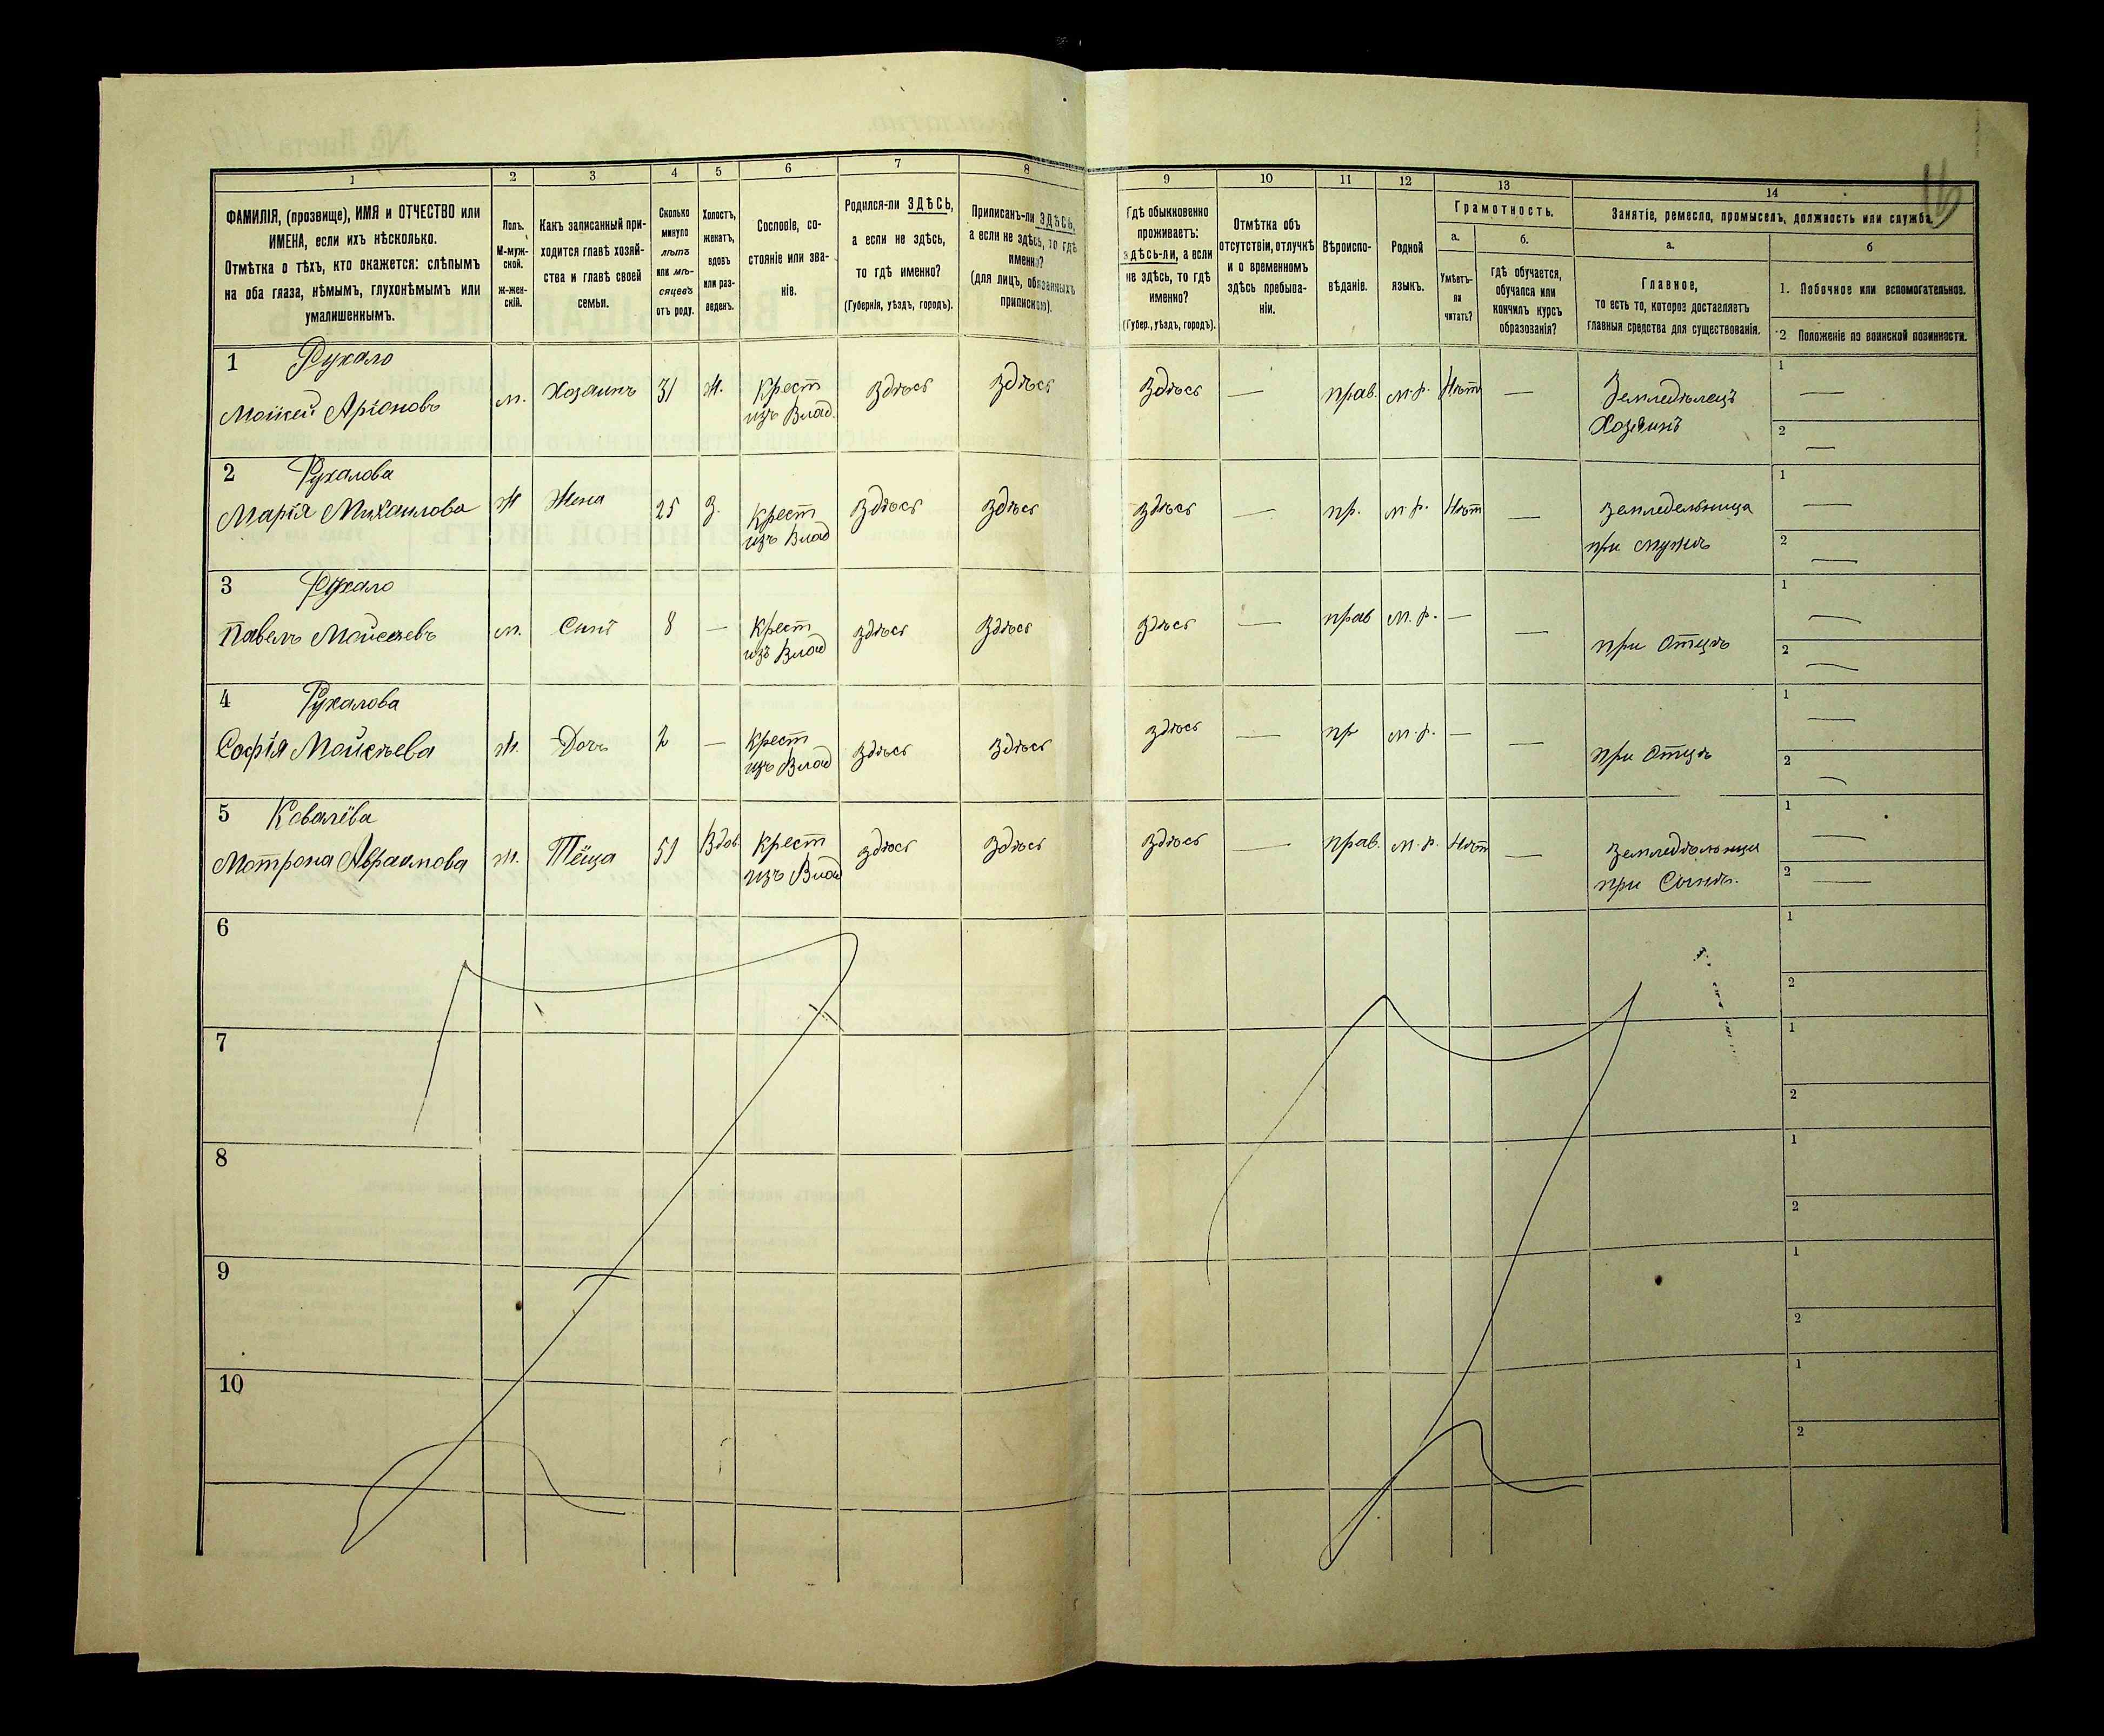 16
1 2 3 4 5 6 7 8 9 10 11 12 13 14
ФАМИЛІЯ, (прозвище), ИМЯ и ОТЧЕСТВО или ИМЕНА, если ихъ нѣсколько.
Отмѣтка о тѣхъ, кто окажется: слѣпымъ на оба глаза, нѣмымъ, глухонѣмымъ или умалишеннымъ.
Полъ. М-мужской. Ж-женскій.
Какъ записанный приходится главѣ хозяйства и главѣ своей семьи.
Сколько минуло лѣтъ или мѣсяцевъ отъ роду.
Холостъ, женатъ, вдовъ или разведенъ.
Сословіе, состояніе или званіе.
Родился-ли ЗДѢСЬ, а если не здѣсь, то гдѣ именно?
(Губернія, уѣздъ, городъ).
Приписанъ-ли ЗДѢСЬ, а если не здѣсь, то гдѣ именно?
(для лицъ, обязанныхъ припискою).
Гдѣ обыкновенно проживаетъ: здѣсь-ли, а если не здѣсь, то гдѣ именно?
(Губер., уѣздъ, городъ).
Отмѣтка объ отсутствіи, отлучкѣ и о временномъ здѣсь пребываніи.
Вѣроисповѣданіе.
Родной языкъ.
Грамотность.
а. Умѣетъ-ли читать?
б. гдѣ обучается, обучался или кончилъ курсъ образованія?
Занятіе, ремесло, промыселъ, должность или служба.
а. Главное, то есть то, которое доставляетъ главныя средства для существованія.
б
1. Побочное или вспомогательное.
2 Положеніе по воинской повинности.
1 Рухало
Мойсей Аріоновъ м. Хозяинъ 31 Ж. Крест изъ Влад. Здѣсь Здѣсь Здѣсь — прав. м.р. Нѣтъ — Земледѣлецъ Хозяинъ 1 — 2 —
2 Рухалова
Марія Михаилова Ж Жена 25 З. Крест изъ Влад Здѣсь Здѣсь Здѣсь — пр. м.р. Нѣт — Земледельница при мужѣ 1 — 2 —
3 Рухало
Павелъ Мойсеевъ м. Сынъ 8 — Крест изъ Влад здѣсь Здѣсь Здѣсь — прав м.р. — — при Отцѣ 1 — 2 —
4 Рухалова
Софія Мойсѣева Ж. Дочь 2 — Крест изъ Влад здѣсь Здѣсь здѣсь — пр м.р. — — при Отцѣ 1 — 2 —
5 Ковалёва
Мотрона Авраамова Ж. Тёща 59 Вдов Крест изъ Влад здѣсь Здѣсь Здѣсь — прав. м.р. Нѣт — Земледѣльница при Сынѣ. 1 — 2 —
6 1 2
7 1 2
8 1 2
9 1 2
10 1 2